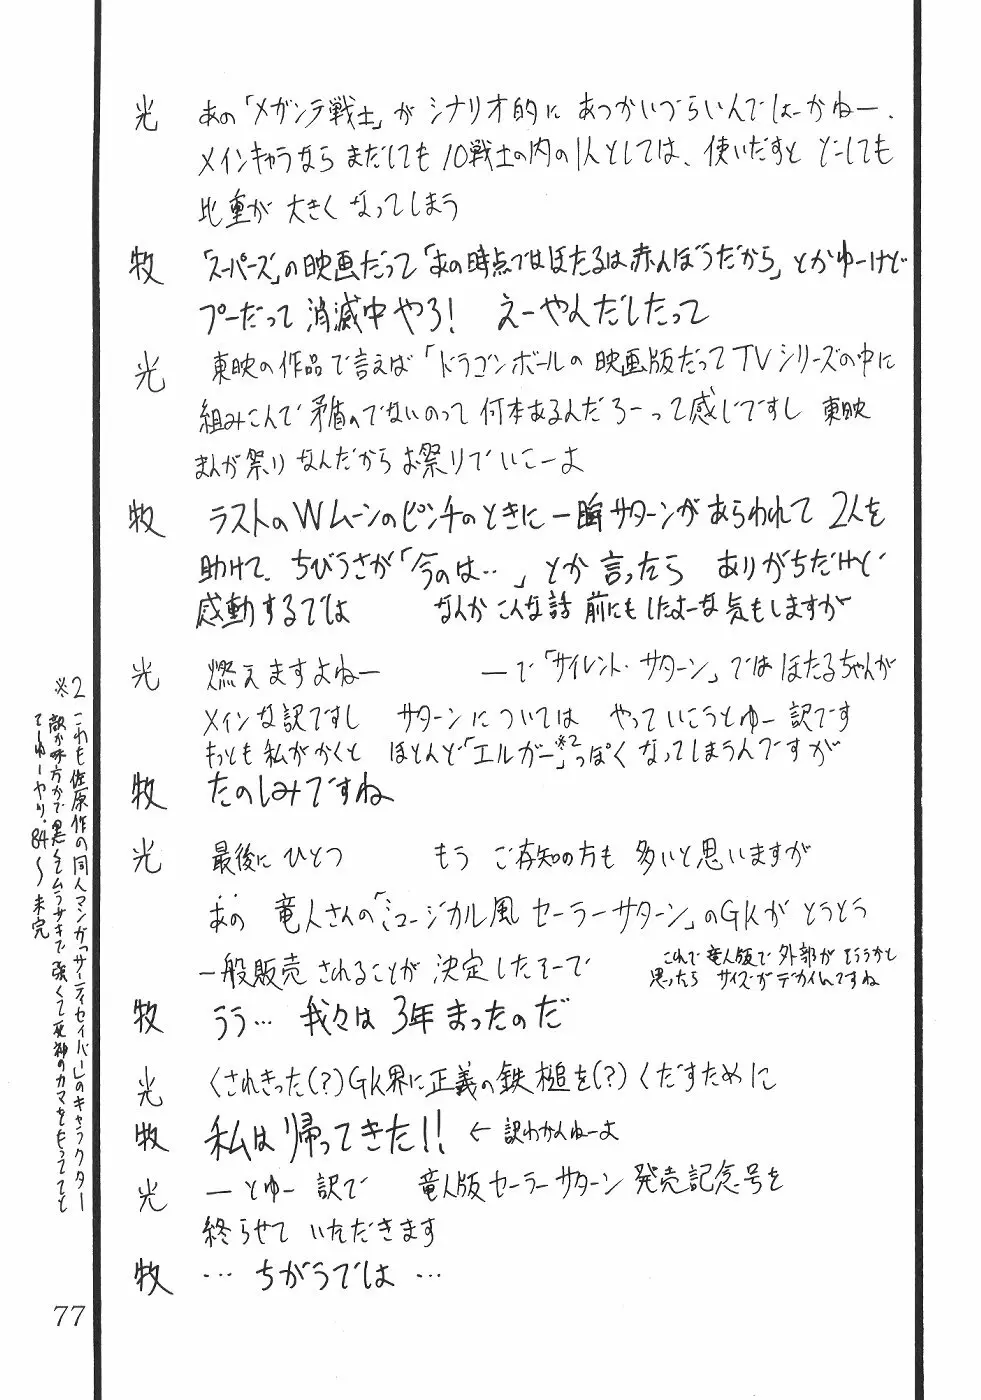 光 あの「メガンテ戦士」が シナリオ的に あつかいづらいんでしょーかねー、
メインキャラなら まだしても 10戦士の内の1人としては、使いだすと どーしても
比重が 大きく なってしまう
牧 「スーパーズ」の映画だって「あの時点ではほたるは赤んぼうだから」とかゆーけど
プーだって 消滅中やろ! えーやんだしたって
光 東映の作品で言えば「ドラゴンボールの 映画版だってTVシリーズの中に
組みこんで 矛盾のでないのって 何本あるんだろーって感じですし 東映
まんが祭りなんだから お祭りでいこーよ
牧 ラストのWムーンのピンチのときに 一瞬サターンがあらわれて 2人を
助けて、ちびうさが「今のは‥」とか 言ったら ありがちだけど
感動するでは なんか こんな話 前にもしたよーな気もしますが
光 燃えますよねー ーで「サイレント・サターン」ではほたるちゃんが
メインな訳ですし サターンについては やっていこうとゆー訳です
もっとも私がかくと ほとんど「エルガー」※2っぽくなってしまうんですが
牧 たのしみですね
光 最後に ひとつ もう ご存知の方も 多いと思いますが
あの 竜人さんの「ミュージカル風 セーラーサターン」のGKが とうとう
一般販売 されることが 決定したそーで これで竜人版で 外部が そろうかと
思ったら サイズがデカイんですね
牧 うう… 我々は 3年まったのだ
光 くされきった(?)GK界に正義の鉄槌を(?)くだすために
牧 私は帰ってきた!! ← 訳わかんねーよ
光 ーとゆー訳で 竜人版セーラーサターン 発売記念号を
終らせて いただきます
牧 … ちがうでは …
※2 これも佐原作の同人マンガ「サイティセイバー」のキャラクター
敵か味方かで黒くてムラサキで強くて死神のカマをもってて
てーゆーヤツ。84〜未完
77